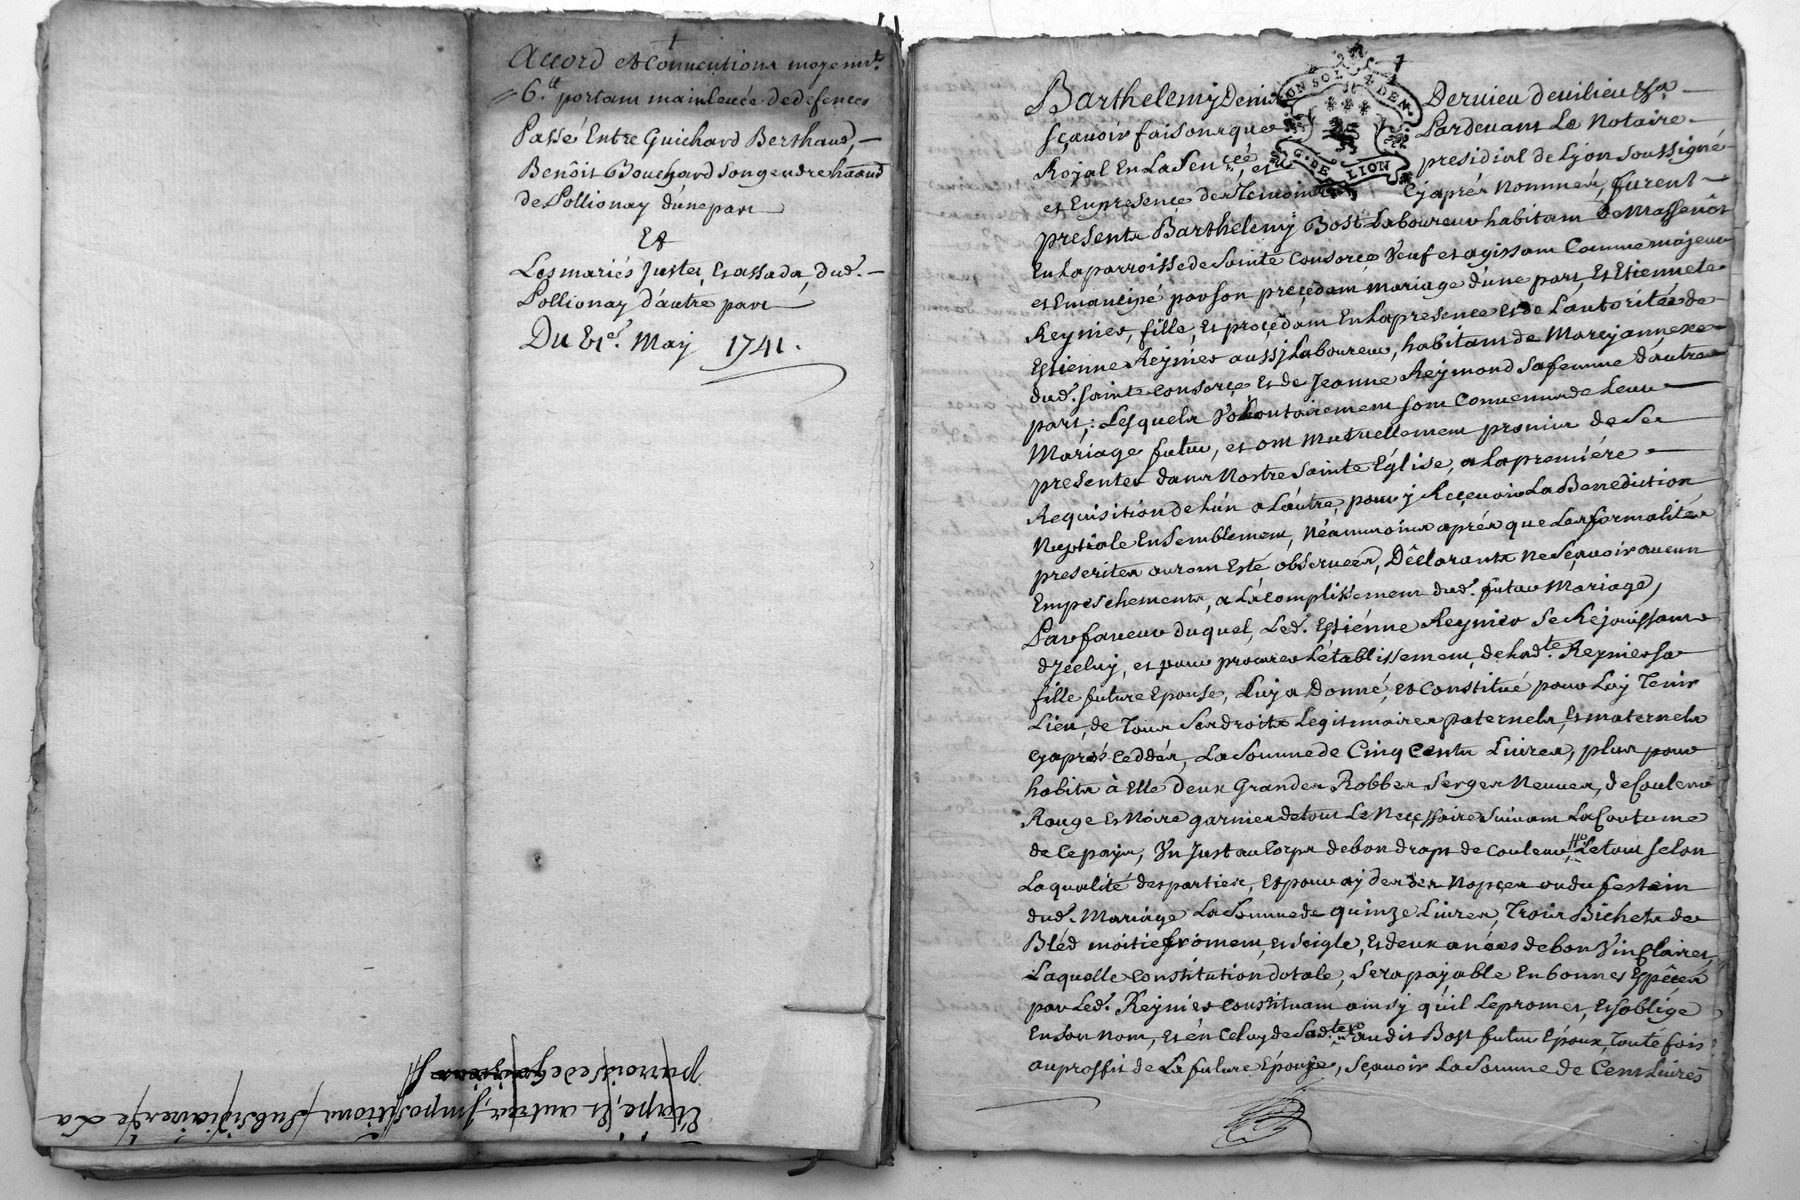 Accord et Conventions moyennt.
6.tt portant mainlevée de defences
Passé Entre Guichard Berthaud, —
Benôit Bouchard Son gendre
de Pollionay d'une part
Et
Les mariés Juste, Et assada, dud. —
Pollionay d'autre part
Du 21e. May 1741.
paroisse de
Etape, Et autres Impositions Subsidiaires de La
Barthelemy Denis Dervieu de vilieu
sçavoir faisons que Pardevant Le Notaire —
Royal En La Sençée, et presidial de Lyon soussigné
et En presence des Temoins Cy après Nommés, furent —
presents Barthelemy Bost Laboureur habitant de
En La parroisse de Sainte Consorce Veuf et agissant Comme majeur
et Emancipé par son precedant mariage d'une part, Et Etiennete
Reynier, fille, Et procedant En La presence Et de L'autorité de
Estienne Reynier aussy Laboureur, habitant de Marcy annexe
dud. Sainte Consorce Et de Jeanne Reymond Sa femme d'autre
part; Lesquels Volontairement sont Convenus de Leur —
Mariage futur, et ont mutuellement promis de Se
presenter dans Nostre Sainte Église, a La première —
Requisition de L'un a L'autre, pour y Recevoir La Benediction
Nuptiale Ensemblement, Néanmoins après que Les formalités
prescrites auront Esté observées, Déclarants Ne Sçavoir aucun
Empeschements, a L'acomplissement dud. futur Mariage,
Par faveur duquel, Led. Estiénne Reynier Se Rejouissant
d'Jceluy, et pour procurer L'établissement, de Lad.te Reynier Sa
fille future Epouse, Luy a Donné, et Constitué pour Luy Tenir
Lieu, de Tous Ses droits Legitimaires paternels, Et maternels
Cy après Ceddés, La Somme de Cinq Cents Livres, plus pour
habits à Elle deux Grandes Robbes Serges Neuves, de Couleur
Rouge Et Noire garnies de tout Le Necessaire Suivant La Coutume
de Ce pays, Un Just au Corps de bon drapt de Couleur, Le tout selon
La qualité des parties, Et pour ayder Nopçes ou du festein
dud. Mariage La Somme de quinze Livres, Trois Bichets de
Bléd moitie froment, Et seigle, Et deux anées de bon Vin Clairet,
Laquelle Constitution dotale, Sera payable En bonnes Espêces
par Led. Reynier Constituant ainsy qu'il Le promet, Et s'oblige
En son Nom, Et en Celuy de Sad.te audit Bost futur Époux, Toute fois
au proffit de La future Épouse, Sçavoir La Somme de Cent Livres